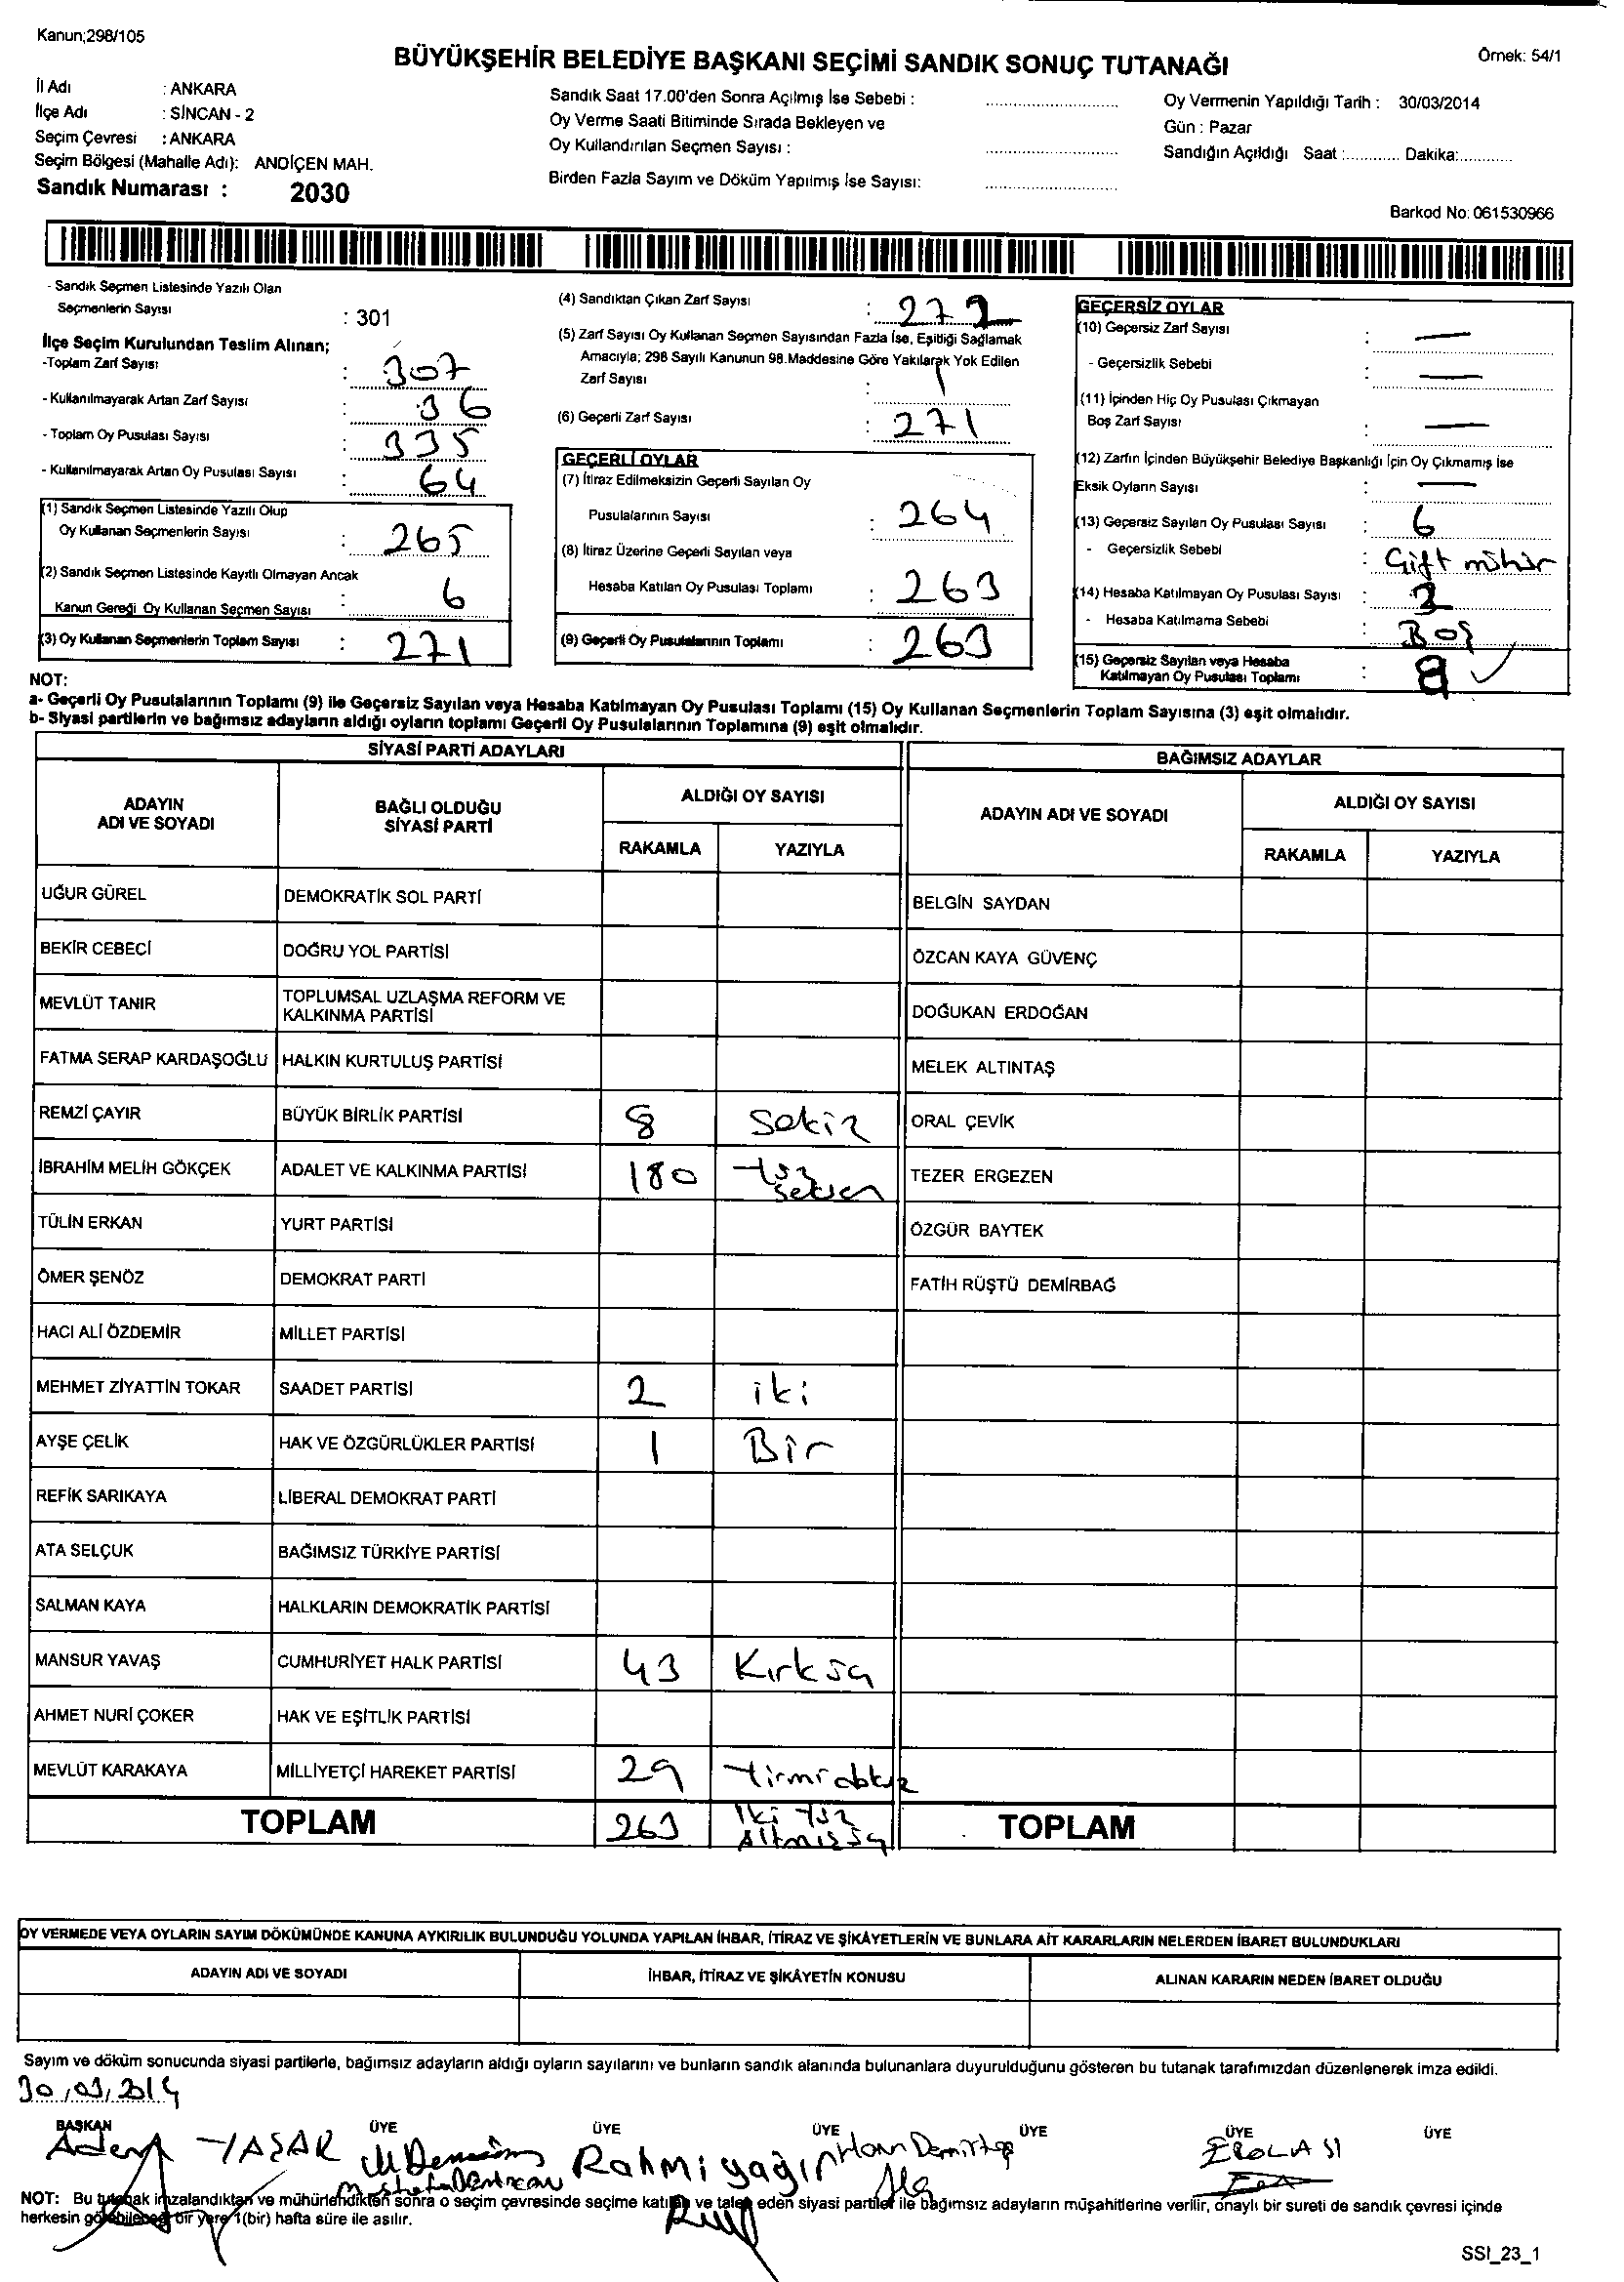 Kanun;298/105
BÜYÜKŞEHİR BELEDİYE BAŞKANI SEÇİMİ SANDIK SONUÇ TUTANAĞI
Örnek: 54/1
İl Adı : ANKARA
İlçe Adı : SİNCAN - 2
Seçim Çevresi : ANKARA
Seçim Bölgesi (Mahalle Adı): ANDİÇEN MAH.
Sandık Numarası : 2030
Sandık Saat 17.00'den Sonra Açılmış İse Sebebi :
Oy Verme Saati Bitiminde Sırada Bekleyen ve
Oy Kullandırılan Seçmen Sayısı :
Birden Fazla Sayım ve Döküm Yapılmış İse Sayısı:
Oy Vermenin Yapıldığı Tarih : 30/03/2014
Gün : Pazar
Sandığın Açıldığı Saat :............ Dakika:............
Barkod No: 061530966
- Sandık Seçmen Listesinde Yazılı Olan
Seçmenlerin Sayısı : 301
İlçe Seçim Kurulundan Teslim Alınan;
-Toplam Zarf Sayısı : 307
- Kullanılmayarak Artan Zarf Sayısı : 36
- Toplam Oy Pusulası Sayısı : 335
- Kullanılmayarak Artan Oy Pusulası Sayısı : 64
(1) Sandık Seçmen Listesinde Yazılı Olup
Oy Kullanan Seçmenlerin Sayısı : 265
(2) Sandık Seçmen Listesinde Kayıtlı Olmayan Ancak
Kanun Gereği Oy Kullanan Seçmen Sayısı : 6
(3) Oy Kullanan Seçmenlerin Toplam Sayısı : 271
(4) Sandıktan Çıkan Zarf Sayısı : 272
(5) Zarf Sayısı Oy Kullanan Seçmen Sayısından Fazla İse, Eşitliği Sağlamak
Amacıyla; 298 Sayılı Kanunun 98.Maddesine Göre Yakılarak Yok Edilen
Zarf Sayısı : 1
(6) Geçerli Zarf Sayısı : 271
GEÇERLİ OYLAR
(7) İtiraz Edilmeksizin Geçerli Sayılan Oy
Pusulalarının Sayısı : 264
(8) İtiraz Üzerine Geçerli Sayılan veya
Hesaba Katılan Oy Pusulası Toplamı : 263
(9) Geçerli Oy Pusulalarının Toplamı : 263
GEÇERSİZ OYLAR
(10) Geçersiz Zarf Sayısı : —
- Geçersizlik Sebebi : —
(11) İçinden Hiç Oy Pusulası Çıkmayan
Boş Zarf Sayısı : —
(12) Zarfın İçinden Büyükşehir Belediye Başkanlığı İçin Oy Çıkmamış İse
Eksik Oyların Sayısı : —
(13) Geçersiz Sayılan Oy Pusulası Sayısı : 6
- Geçersizlik Sebebi : Çift mühür
(14) Hesaba Katılmayan Oy Pusulası Sayısı : 2
- Hesaba Katılmama Sebebi : Boş
(15) Geçersiz Sayılan veya Hesaba
Katılmayan Oy Pusulası Toplamı : 8
NOT:
a- Geçerli Oy Pusulalarının Toplamı (9) ile Geçersiz Sayılan veya Hesaba Katılmayan Oy Pusulası Toplamı (15) Oy Kullanan Seçmenlerin Toplam Sayısına (3) eşit olmalıdır.
b- Siyasi partilerin ve bağımsız adayların aldığı oyların toplamı Geçerli Oy Pusulalarının Toplamına (9) eşit olmalıdır.
SİYASİ PARTİ ADAYLARI
ADAYIN ADI VE SOYADI
BAĞLI OLDUĞU SİYASİ PARTİ
ALDIĞI OY SAYISI
RAKAMLA YAZIYLA
UĞUR GÜREL DEMOKRATİK SOL PARTİ
BEKİR CEBECİ DOĞRU YOL PARTİSİ
MEVLÜT TANIR TOPLUMSAL UZLAŞMA REFORM VE KALKINMA PARTİSİ
FATMA SERAP KARDAŞOĞLU HALKIN KURTULUŞ PARTİSİ
REMZİ ÇAYIR BÜYÜK BİRLİK PARTİSİ 8 Sekiz
İBRAHİM MELİH GÖKÇEK ADALET VE KALKINMA PARTİSİ 180 Yüz Seksen
TÜLİN ERKAN YURT PARTİSİ
ÖMER ŞENÖZ DEMOKRAT PARTİ
HACI ALİ ÖZDEMİR MİLLET PARTİSİ
MEHMET ZİYATTİN TOKAR SAADET PARTİSİ 2 iki
AYŞE ÇELİK HAK VE ÖZGÜRLÜKLER PARTİSİ 1 Bir
REFİK SARIKAYA LİBERAL DEMOKRAT PARTİ
ATA SELÇUK BAĞIMSIZ TÜRKİYE PARTİSİ
SALMAN KAYA HALKLARIN DEMOKRATİK PARTİSİ
MANSUR YAVAŞ CUMHURİYET HALK PARTİSİ 43 Kırküç
AHMET NURİ ÇOKER HAK VE EŞİTLİK PARTİSİ
MEVLÜT KARAKAYA MİLLİYETÇİ HAREKET PARTİSİ 29 Yirmidokuz
TOPLAM 263 İki Yüz Altmışüç
BAĞIMSIZ ADAYLAR
ADAYIN ADI VE SOYADI
ALDIĞI OY SAYISI
RAKAMLA YAZIYLA
BELGİN SAYDAN
ÖZCAN KAYA GÜVENÇ
DOĞUKAN ERDOĞAN
MELEK ALTINTAŞ
ORAL ÇEVİK
TEZER ERGEZEN
ÖZGÜR BAYTEK
FATİH RÜŞTÜ DEMİRBAĞ
TOPLAM
OY VERMEDE VEYA OYLARIN SAYIM DÖKÜMÜNDE KANUNA AYKIRILIK BULUNDUĞU YOLUNDA YAPILAN İHBAR, İTİRAZ VE ŞİKÂYETLERİN VE BUNLARA AİT KARARLARIN NELERDEN İBARET BULUNDUKLARI
ADAYIN ADI VE SOYADI
İHBAR, İTİRAZ VE ŞİKÂYETİN KONUSU
ALINAN KARARIN NEDEN İBARET OLDUĞU
Sayım ve döküm sonucunda siyasi partilerle, bağımsız adayların aldığı oyların sayılarını ve bunların sandık alanında bulunanlara duyurulduğunu gösteren bu tutanak tarafımızdan düzenlenerek imza edildi.
30/03/2014
BAŞKAN ÜYE ÜYE ÜYE ÜYE ÜYE ÜYE
Adem YAŞAR
Rahmi yağır
EROL ASI
NOT: Bu tutanak imzalandıktan ve mühürlendikten sonra o seçim çevresinde seçime katılan ve talep eden siyasi partiler ile bağımsız adayların müşahitlerine verilir, onaylı bir sureti de sandık çevresi içinde
herkesin görebileceği bir yere 1(bir) hafta süre ile asılır.
SSI_23_1